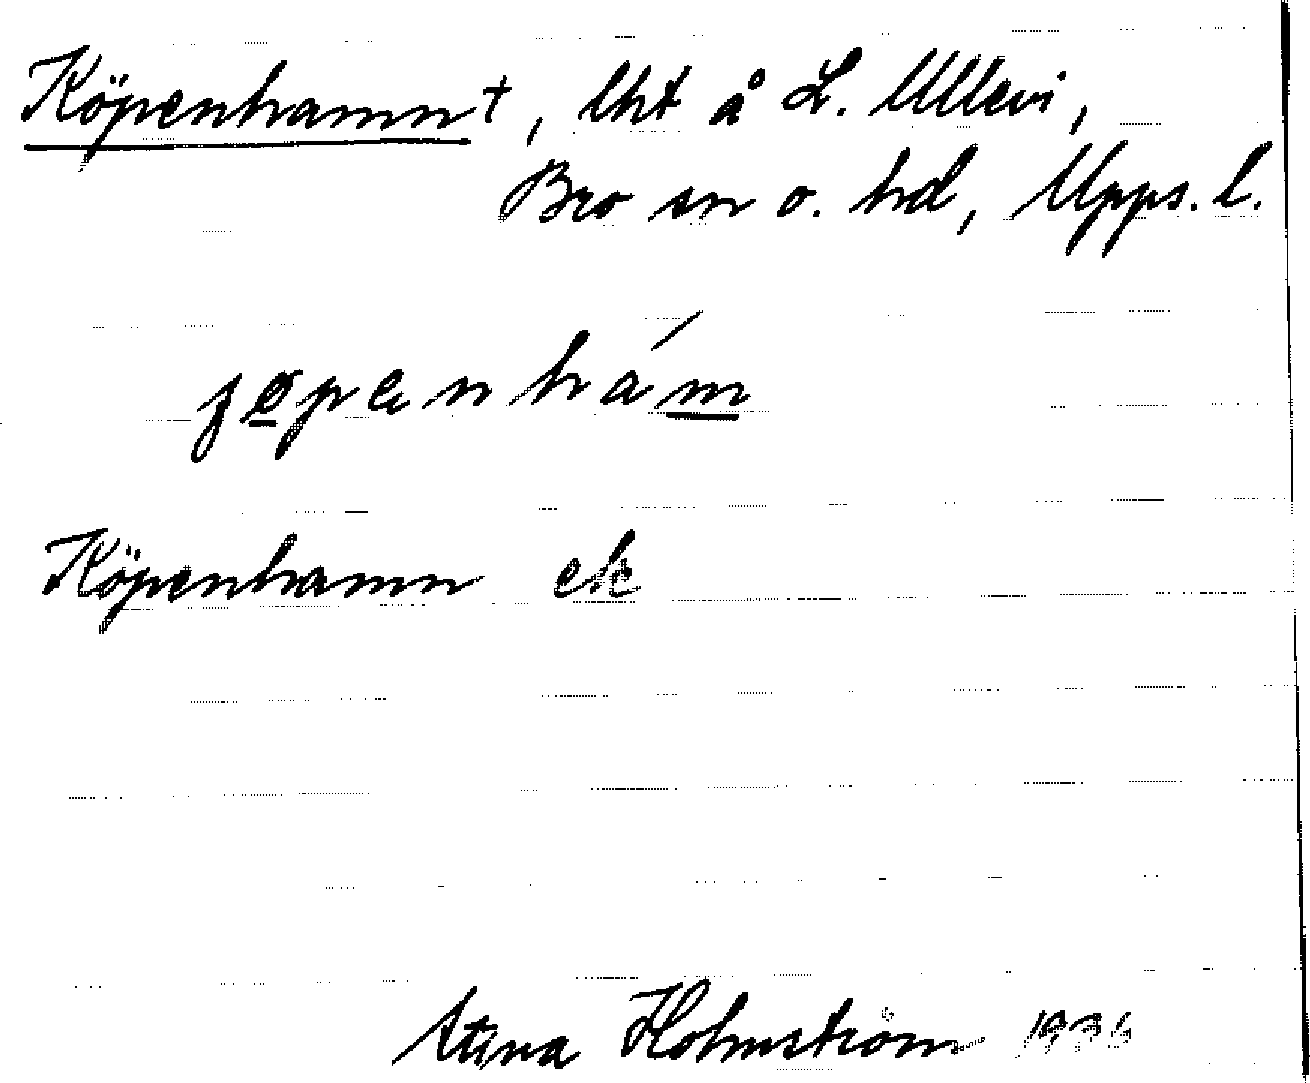 Köpenhamn†, lht å L. Ullevi,
Bro sn o. hd, Upps. l.
Köpenhamn ek
Stina Holmström 1936